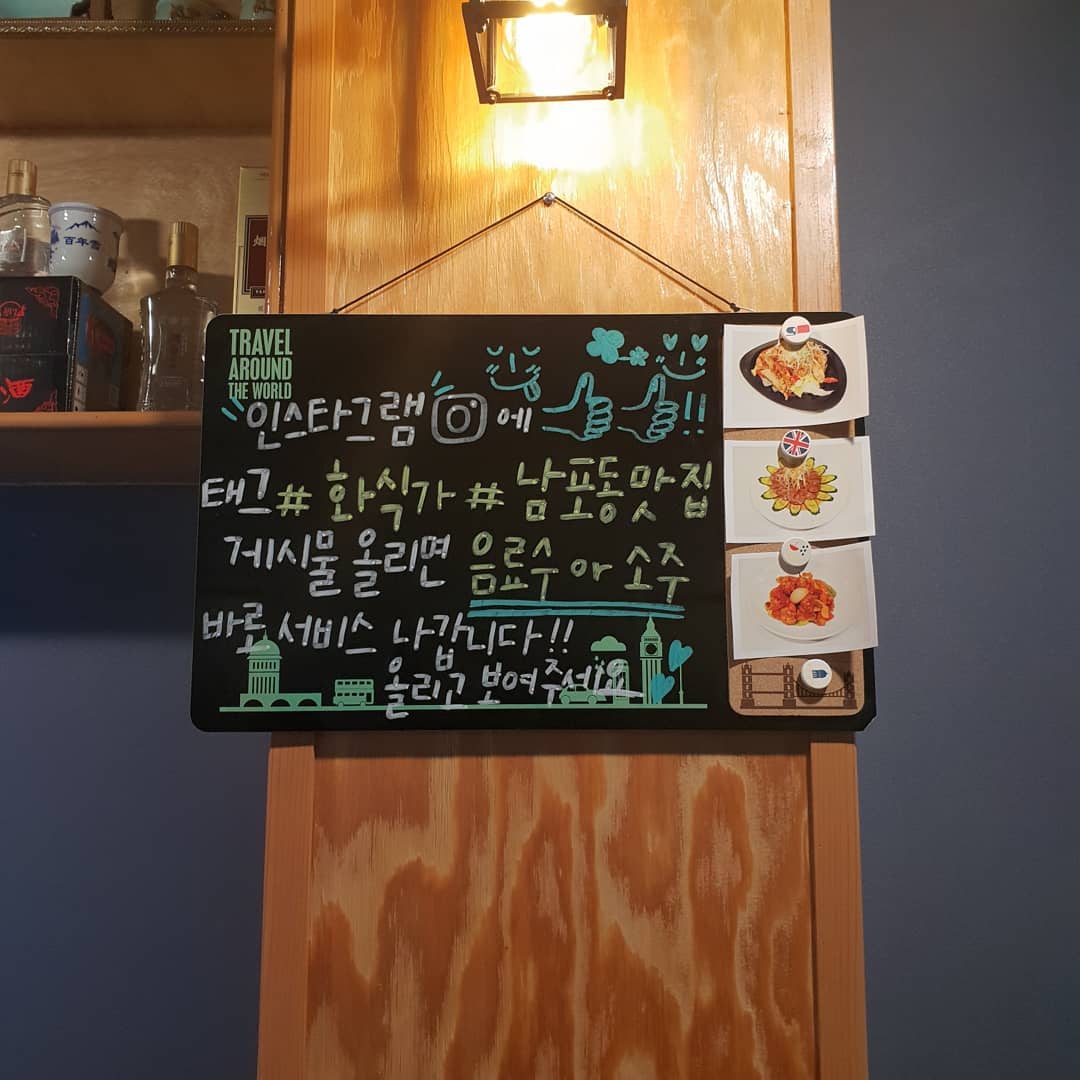 百年雪
烟
酒
TRAVEL
AROUND
THE WORLD
인스타그램 에 !!
태그 # 화식가 # 남포동맛집
게시물 올리면 음료수 or 소주
바로 서비스 나갑니다!!
올리고 보여주세요